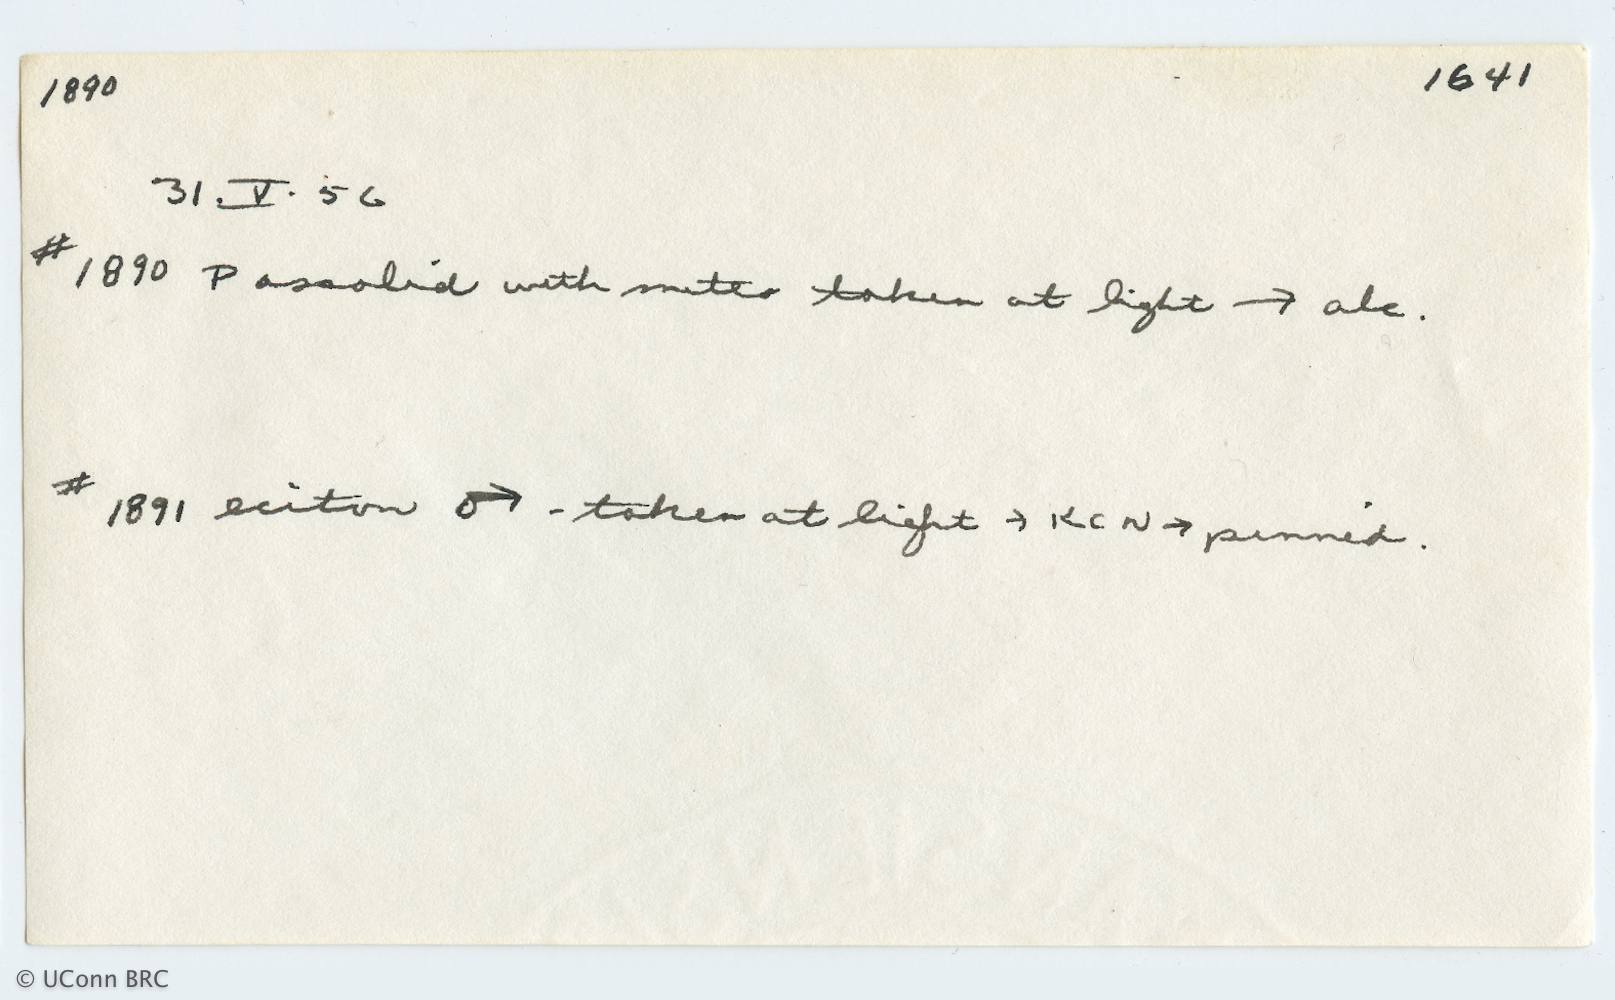 1890 1641
31.V.56
# 1890 Passalid with mites taken at light → alc.
# 1891 eciton ♂ - taken at light → KCN → pinned.
© UConn BRC